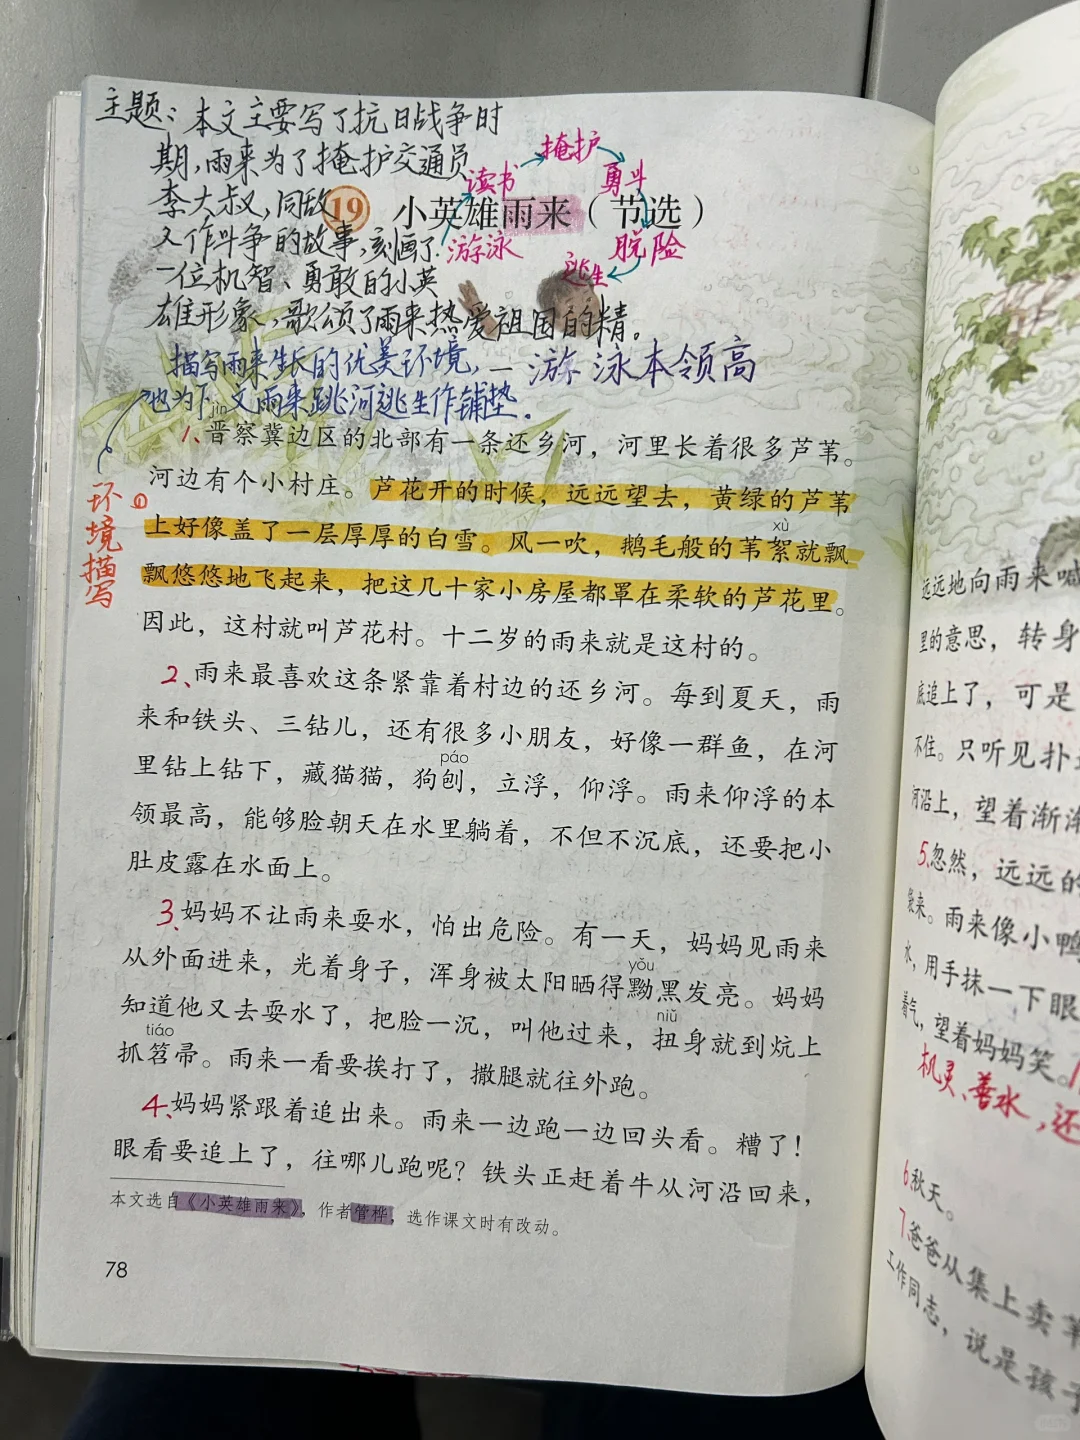 主题：本文主要写了抗日战争时
期，雨来为了掩护交通员
李大叔，同敌
人作斗争的故事，刻画了
一位机智、勇敢的小英
雄形象，歌颂了雨来热爱祖国的精。
游泳
读书
掩护
勇斗
脱险
逃生
19 小英雄雨来（节选）
描写雨来生长的优美环境，
也为下文雨来跳河逃生作铺垫。
— 游泳本领高
环境描写
①
jìn
1、晋察冀边区的北部有一条还乡河，河里长着很多芦苇。
河边有个小村庄。芦花开的时候，远远望去，黄绿的芦苇
上好像盖了一层厚厚的白雪。风一吹，鹅毛般的苇絮就飘
xù
飘悠悠地飞起来，把这几十家小房屋都罩在柔软的芦花里。
因此，这村就叫芦花村。十二岁的雨来就是这村的。
2、雨来最喜欢这条紧靠着村边的还乡河。每到夏天，雨
来和铁头、三钻儿，还有很多小朋友，好像一群鱼，在河
páo
里钻上钻下，藏猫猫，狗刨，立浮，仰浮。雨来仰浮的本
领最高，能够脸朝天在水里躺着，不但不沉底，还要把小
肚皮露在水面上。
3、妈妈不让雨来耍水，怕出危险。有一天，妈妈见雨来
yǒu
从外面进来，光着身子，浑身被太阳晒得黝黑发亮。妈妈
niǔ
知道他又去耍水了，把脸一沉，叫他过来，扭身就到炕上
tiáo
抓笤帚。雨来一看要挨打了，撒腿就往外跑。
4、妈妈紧跟着追出来。雨来一边跑一边回头看。糟了！
眼看要追上了，往哪儿跑呢？铁头正赶着牛从河沿回来，
本文选自《小英雄雨来》，作者管桦，选作课文时有改动。
78
远远地向雨来喊
里的意思，转身
底追上了，可是
不住。只听见扑
河沿上，望着渐渐
5、忽然，远远的
来。雨来像小鸭
水，用手抹一下眼
着气，望着妈妈笑。
机灵、善水，还
6 秋天。
7、爸爸从集上卖
工作同志，说是孩子